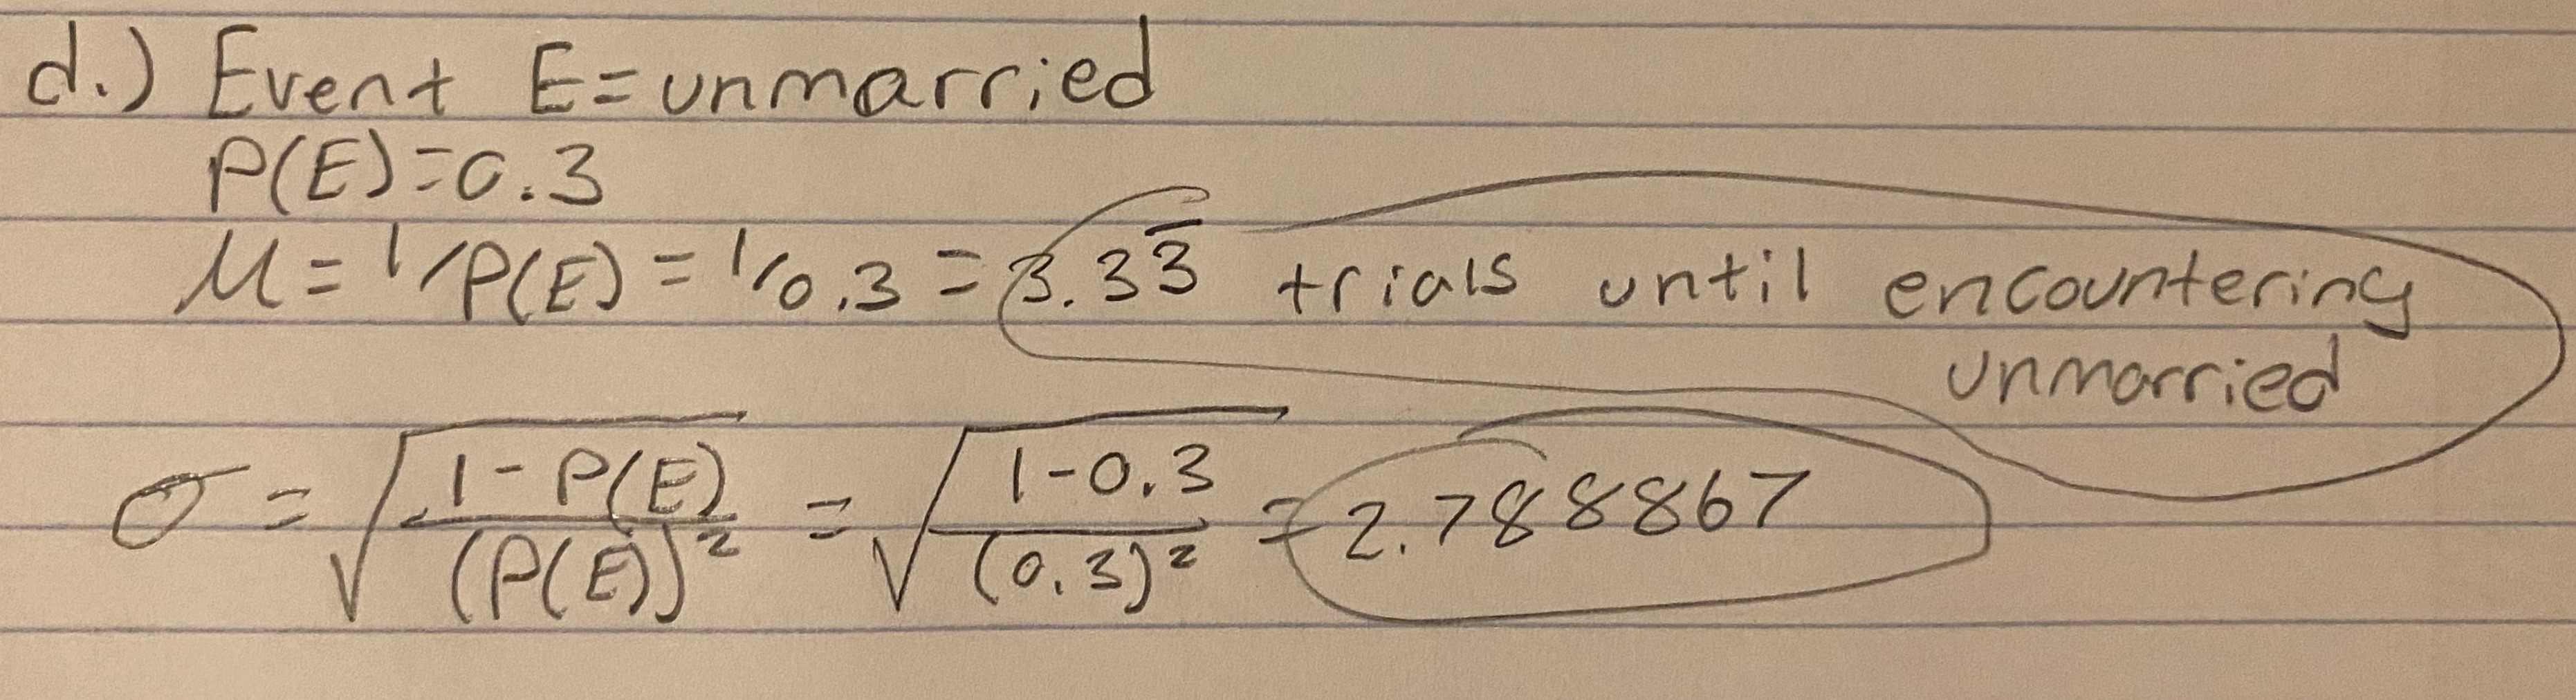 d.) Event E=unmarried
P(E)=0.3
μ = 1/P(E) = 1/0.3 = 3.33̅ trials until encountering
unmarried
σ = √((1-P(E))/(P(E))²) = √((1-0.3)/(0.3)²) = 2.788867